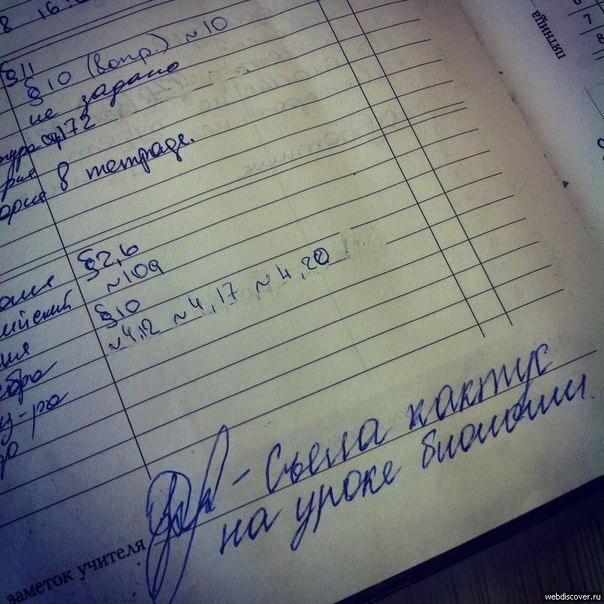 8 16.
§11
§10 (вопр.) №10
не задано
тура с 172
рия
ория в тетраде.
§2,6
ийский №109
§10
ебра №4,12 №4,17 №4,20
з-ра
пятница
заметок учителя
- Съела кактус
на уроке биологии.
webdiscover.ru